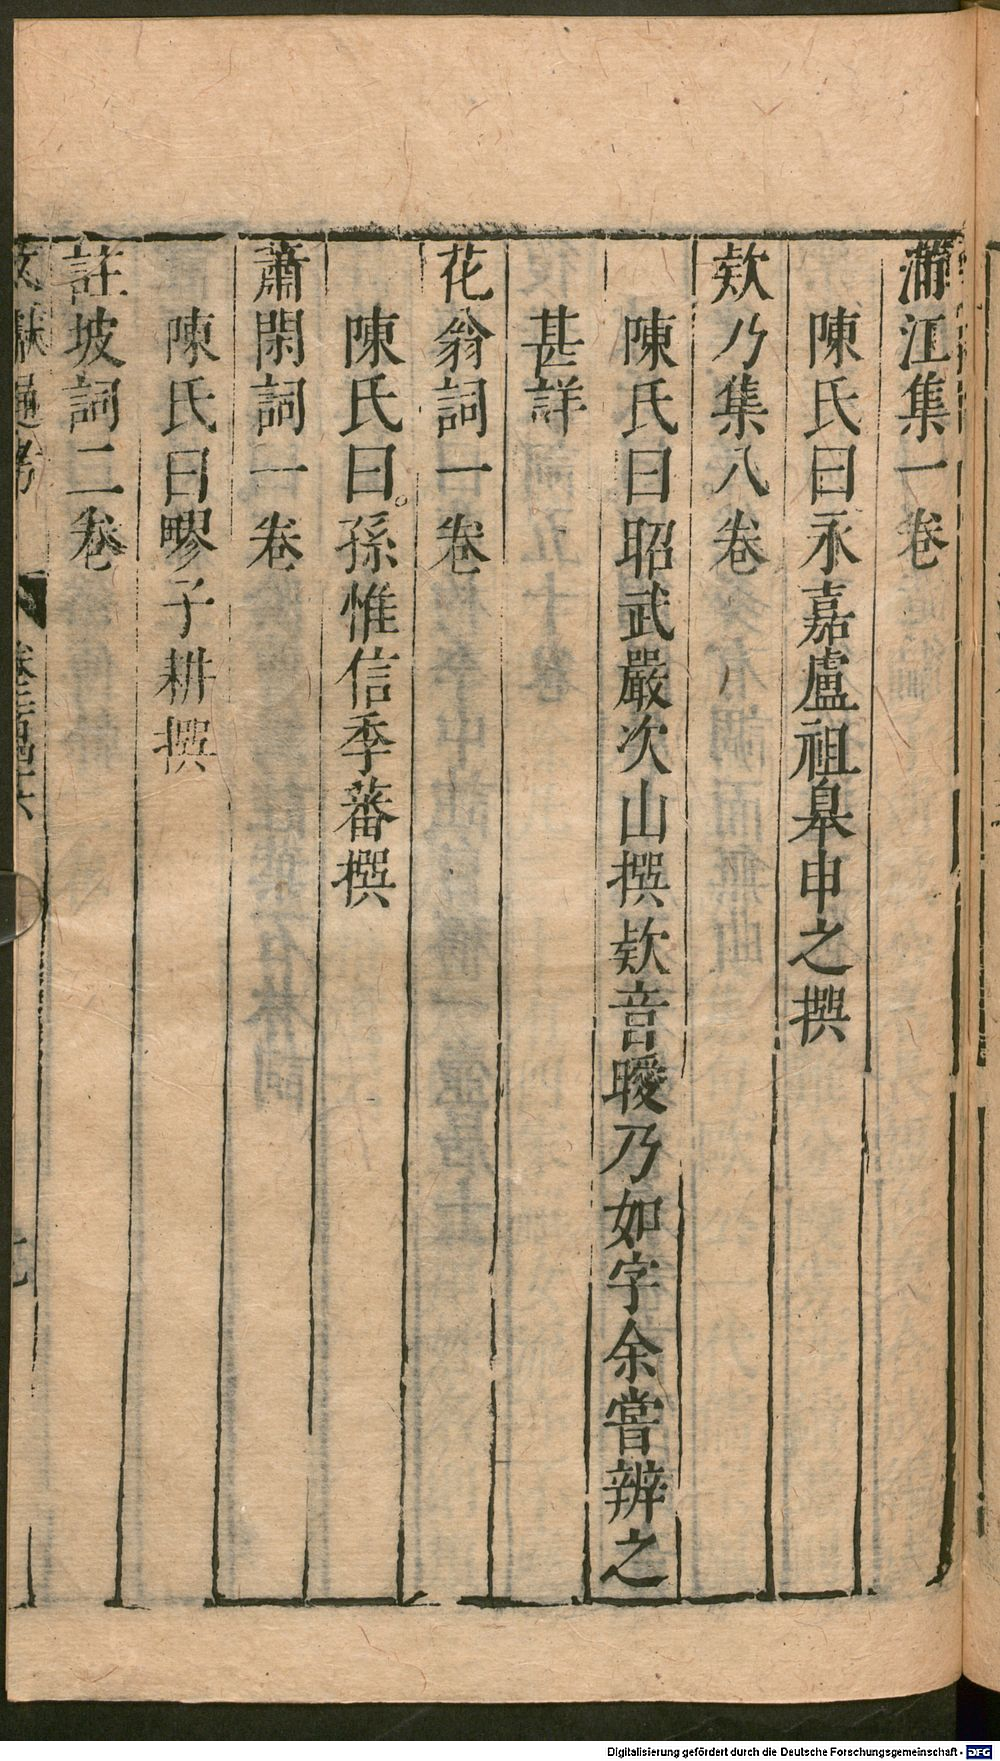 蒲江集一卷
陳氏曰永嘉盧祖皐申之撰
欵乃集八卷
陳氏曰昭武嚴次山撰欵音曖乃如字余嘗辨之
甚詳
花翁詞一卷
陳氏曰。孫惟信季蕃撰
蕭閑詞一卷
陳氏曰疁子耕撰
註坡詞二卷
文獻通考 卷二百四十六
Digitalisierung gefördert durch die Deutsche Forschungsgemeinschaft - DFG